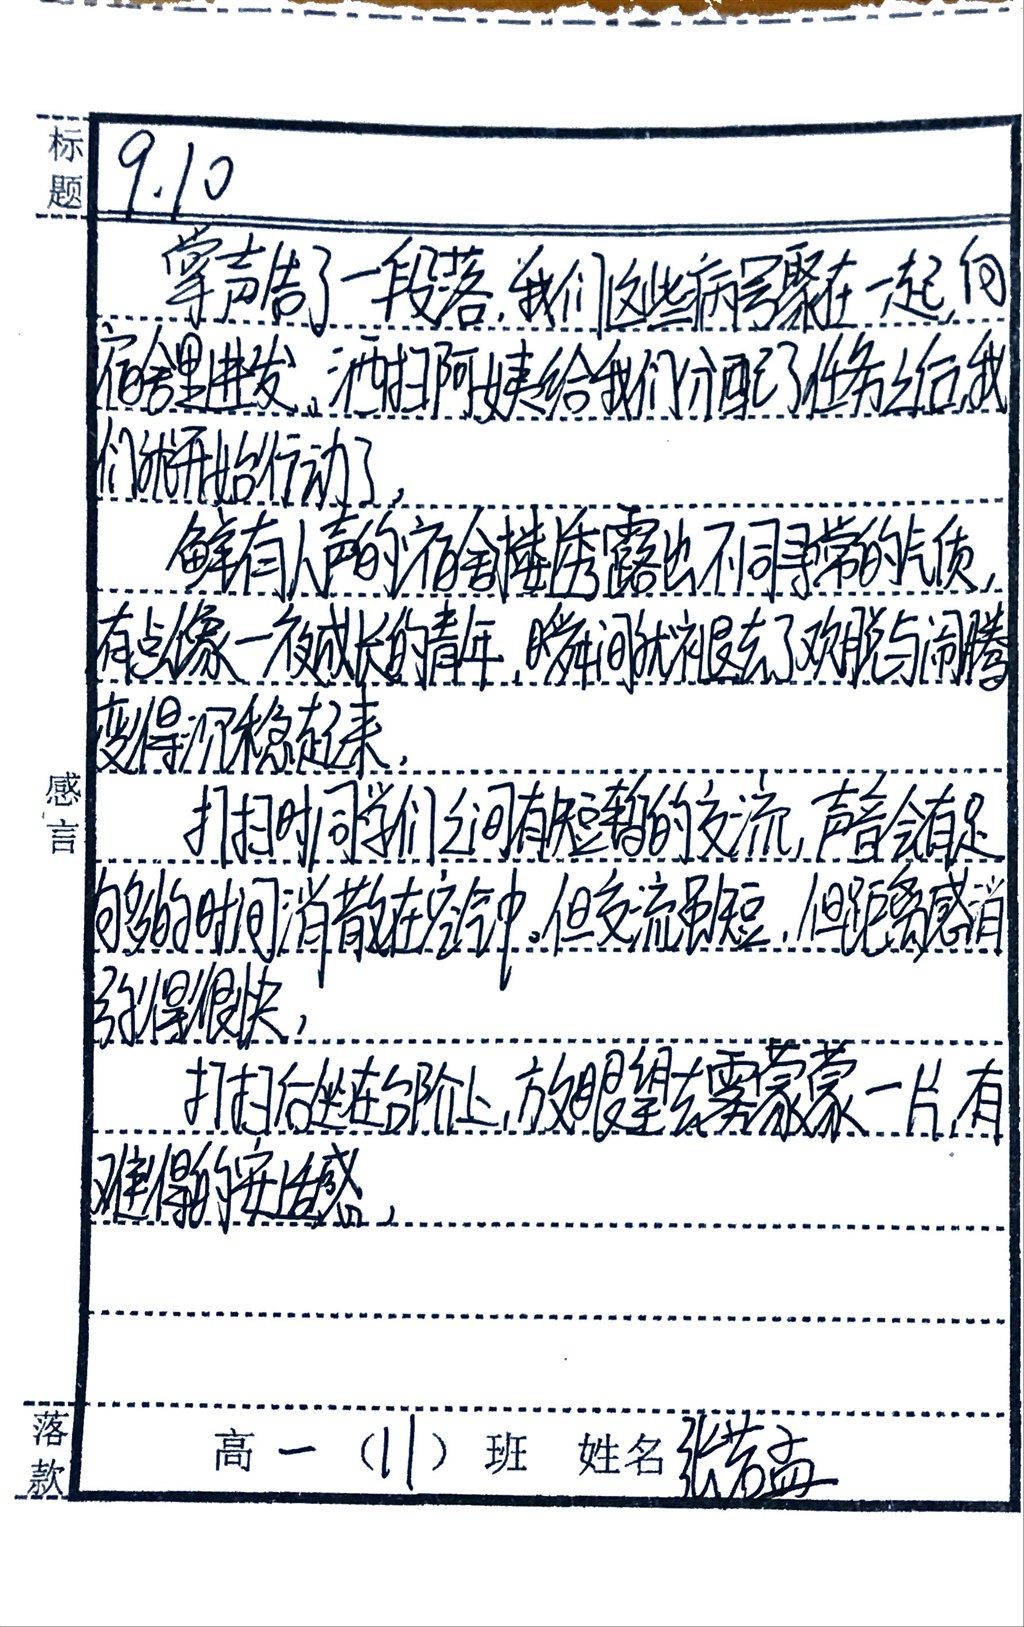 标题
9.10
掌声告了一段落，我们这些病号聚在一起，向
宿舍里进发。洒扫阿姨给我们分配了任务之后，我
们就开始行动了，
鲜有人声的宿舍楼透露出不同寻常的气质，
有点像一夜成长的青年，瞬间就褪去了欢脱与闹腾
变得沉稳起来，
打扫时同学们之间有短暂的交流，声音会有足
够多的时间消散在空气中。但交流虽短，但距离感消
弥得很快，
打扫后坐在台阶上，放眼望去雾蒙蒙一片，有
难得的安恬感，
感言
落款
高一（11）班 姓名 张若孟